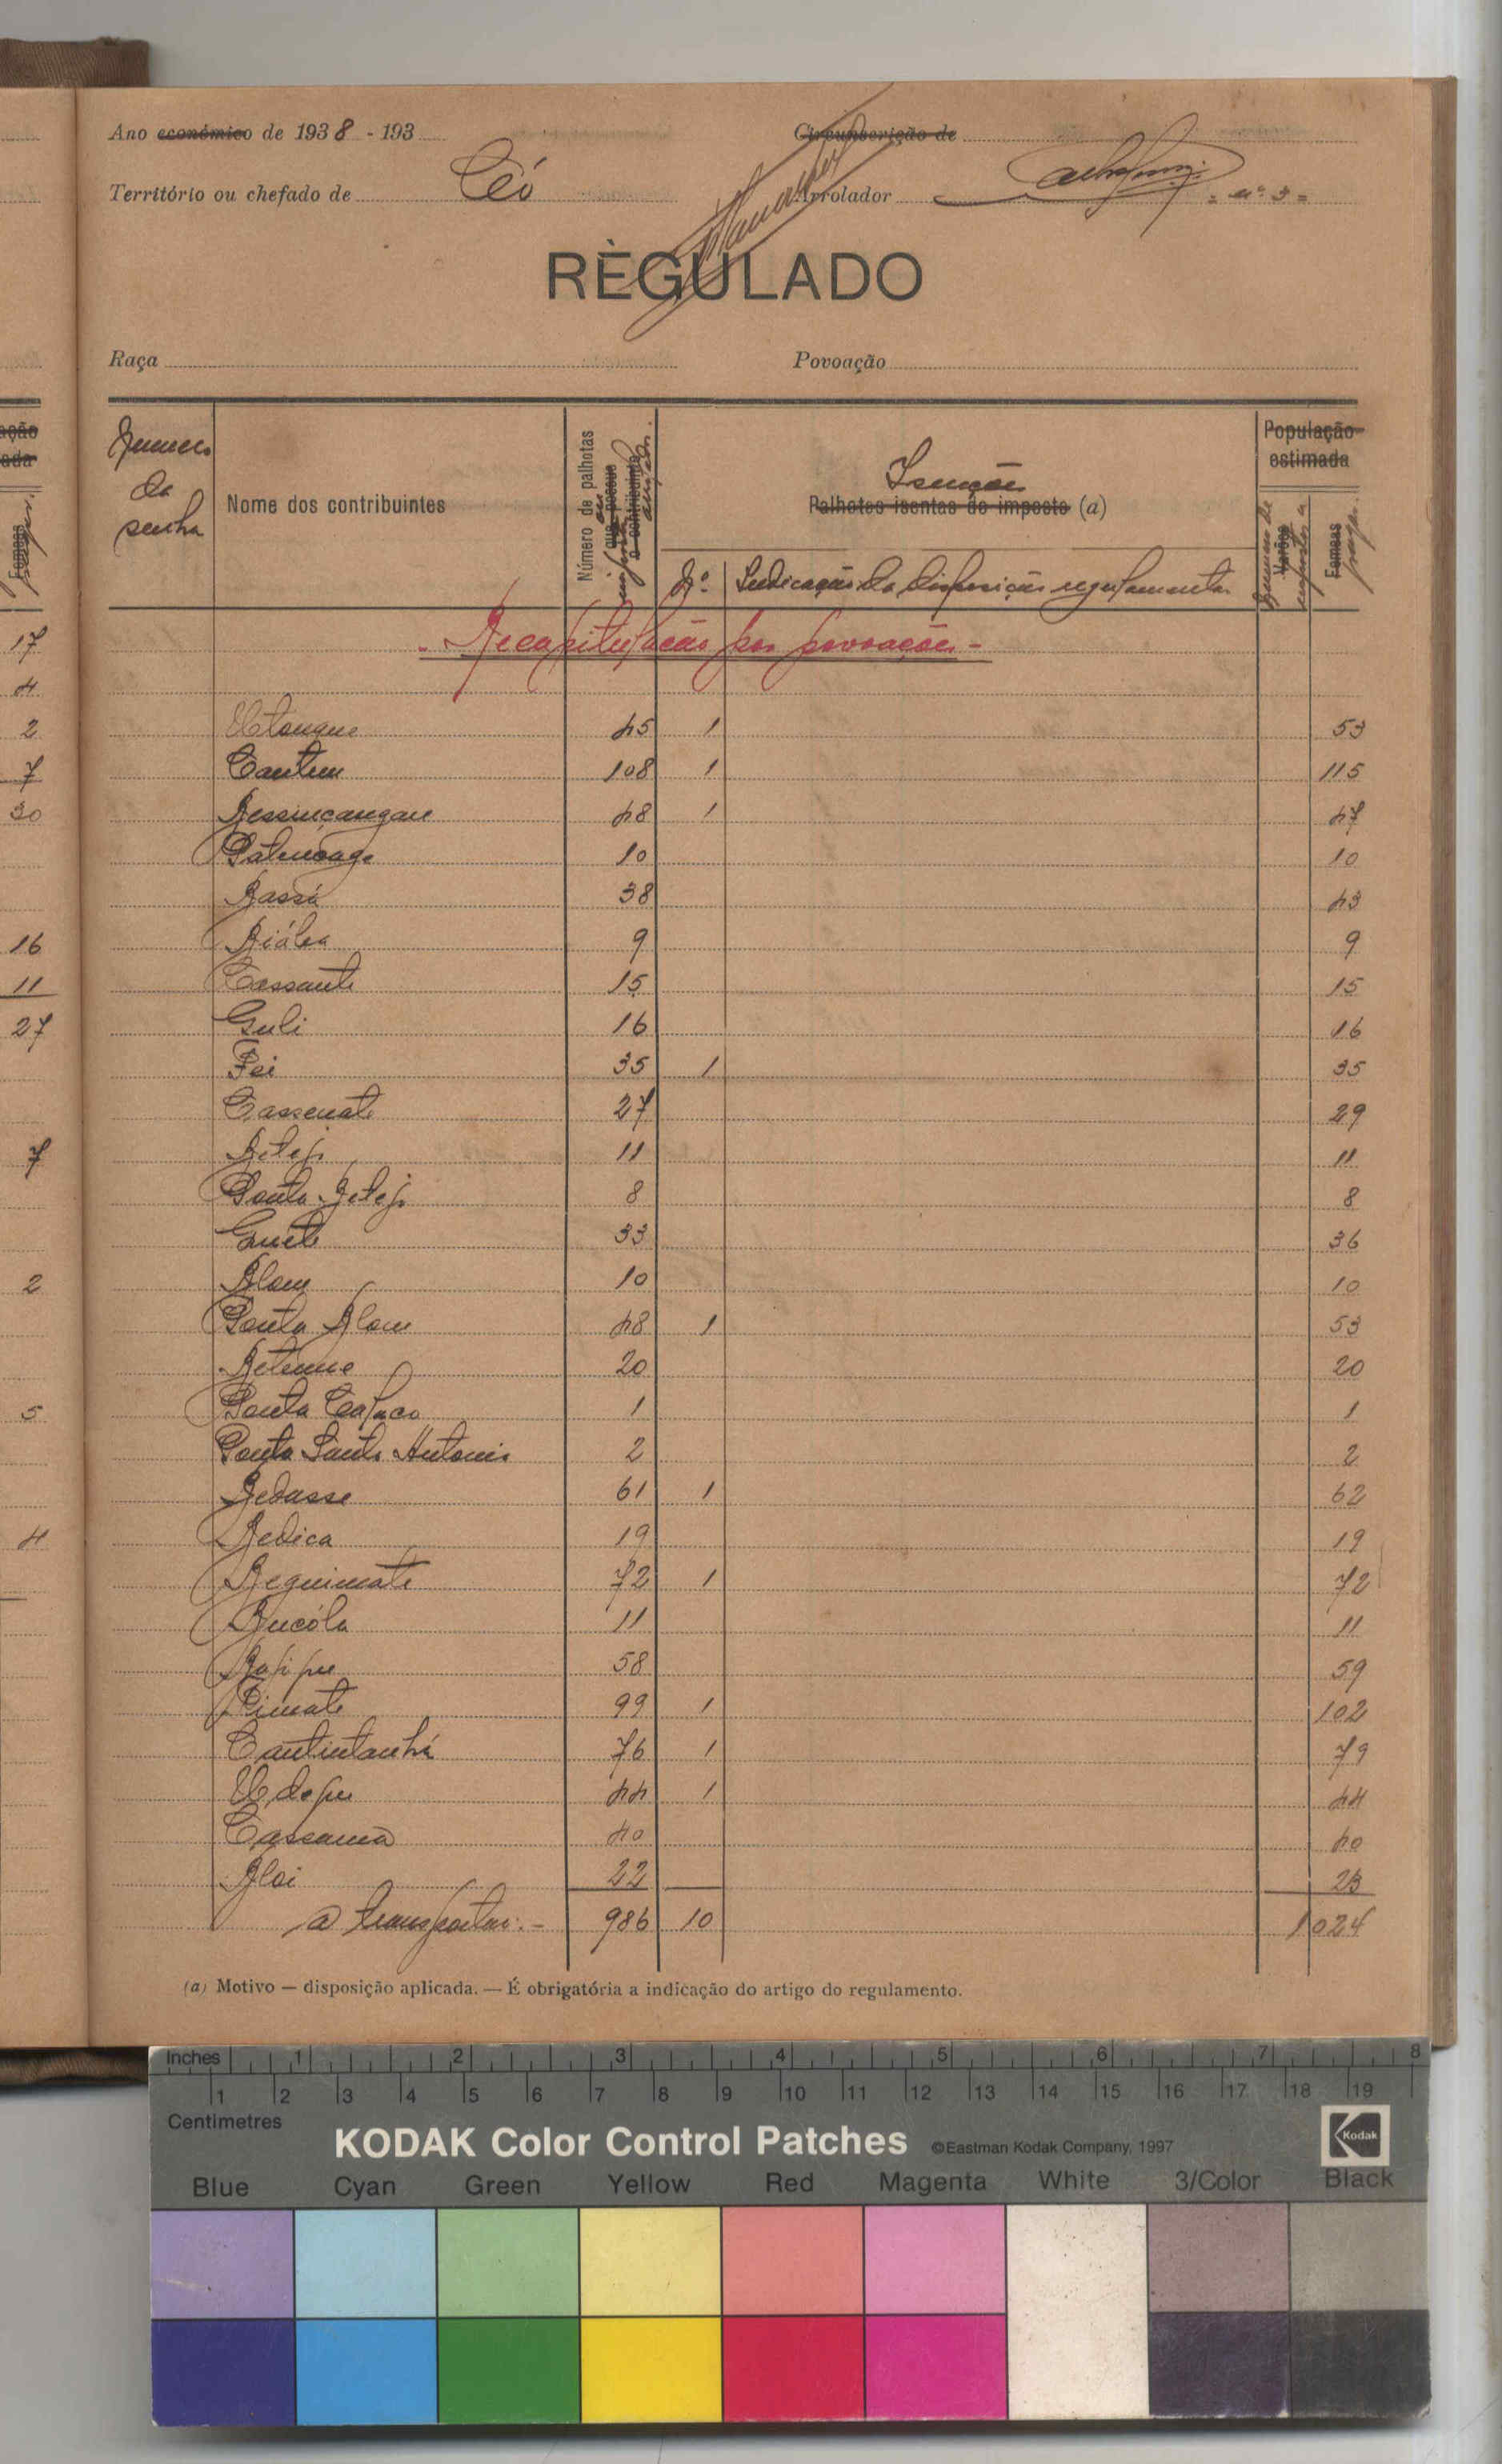 Ano económico de 1938 - 193
Circunscrição de
Território ou chefado de Có
Arrolador = nº 3 =
REGULADO
Raça
Povoação
Numero da senha
Nome dos contribuintes
Número de palhotas que possue o contribuinte
Isenções
Palhotas isentas do imposto (a)
Nº Indicação da disposição regulamentar
População estimada
Varões
Femeas
- Recapitulação por povoações -
45 1 53
Cantem 108 1 115
48 1 47
10 10
Bassá 38 43
9 9
Cassante 15 15
Guli 16 16
Fei 35 1 35
Cassenate 27 29
11 11
Ponta 8 8
33 36
Blom 10 10
Ponta Blom 48 1 53
20 20
Ponta 1 1
Ponta Santo Antonio 2 2
Bedasse 61 1 62
Bedica 19 19
Bequimate 72 1 72
Bucóla 11 11
58 59
99 1 102
Cantintanhá 76 1 79
44 1 44
Cassamá 40 40
Bloi 22 23
a transportar: - 986 10 1024
(a) Motivo — disposição aplicada. — É obrigatória a indicação do artigo do regulamento.
17
4
2
7
30
16
11
27
7
2
5
4
Inches 1 2 3 4 5 6 7 8
1 2 3 4 5 6 7 8 9 10 11 12 13 14 15 16 17 18 19
Centimetres
KODAK Color Control Patches ©Eastman Kodak Company, 1997 Kodak
Blue Cyan Green Yellow Red Magenta White 3/Color Black